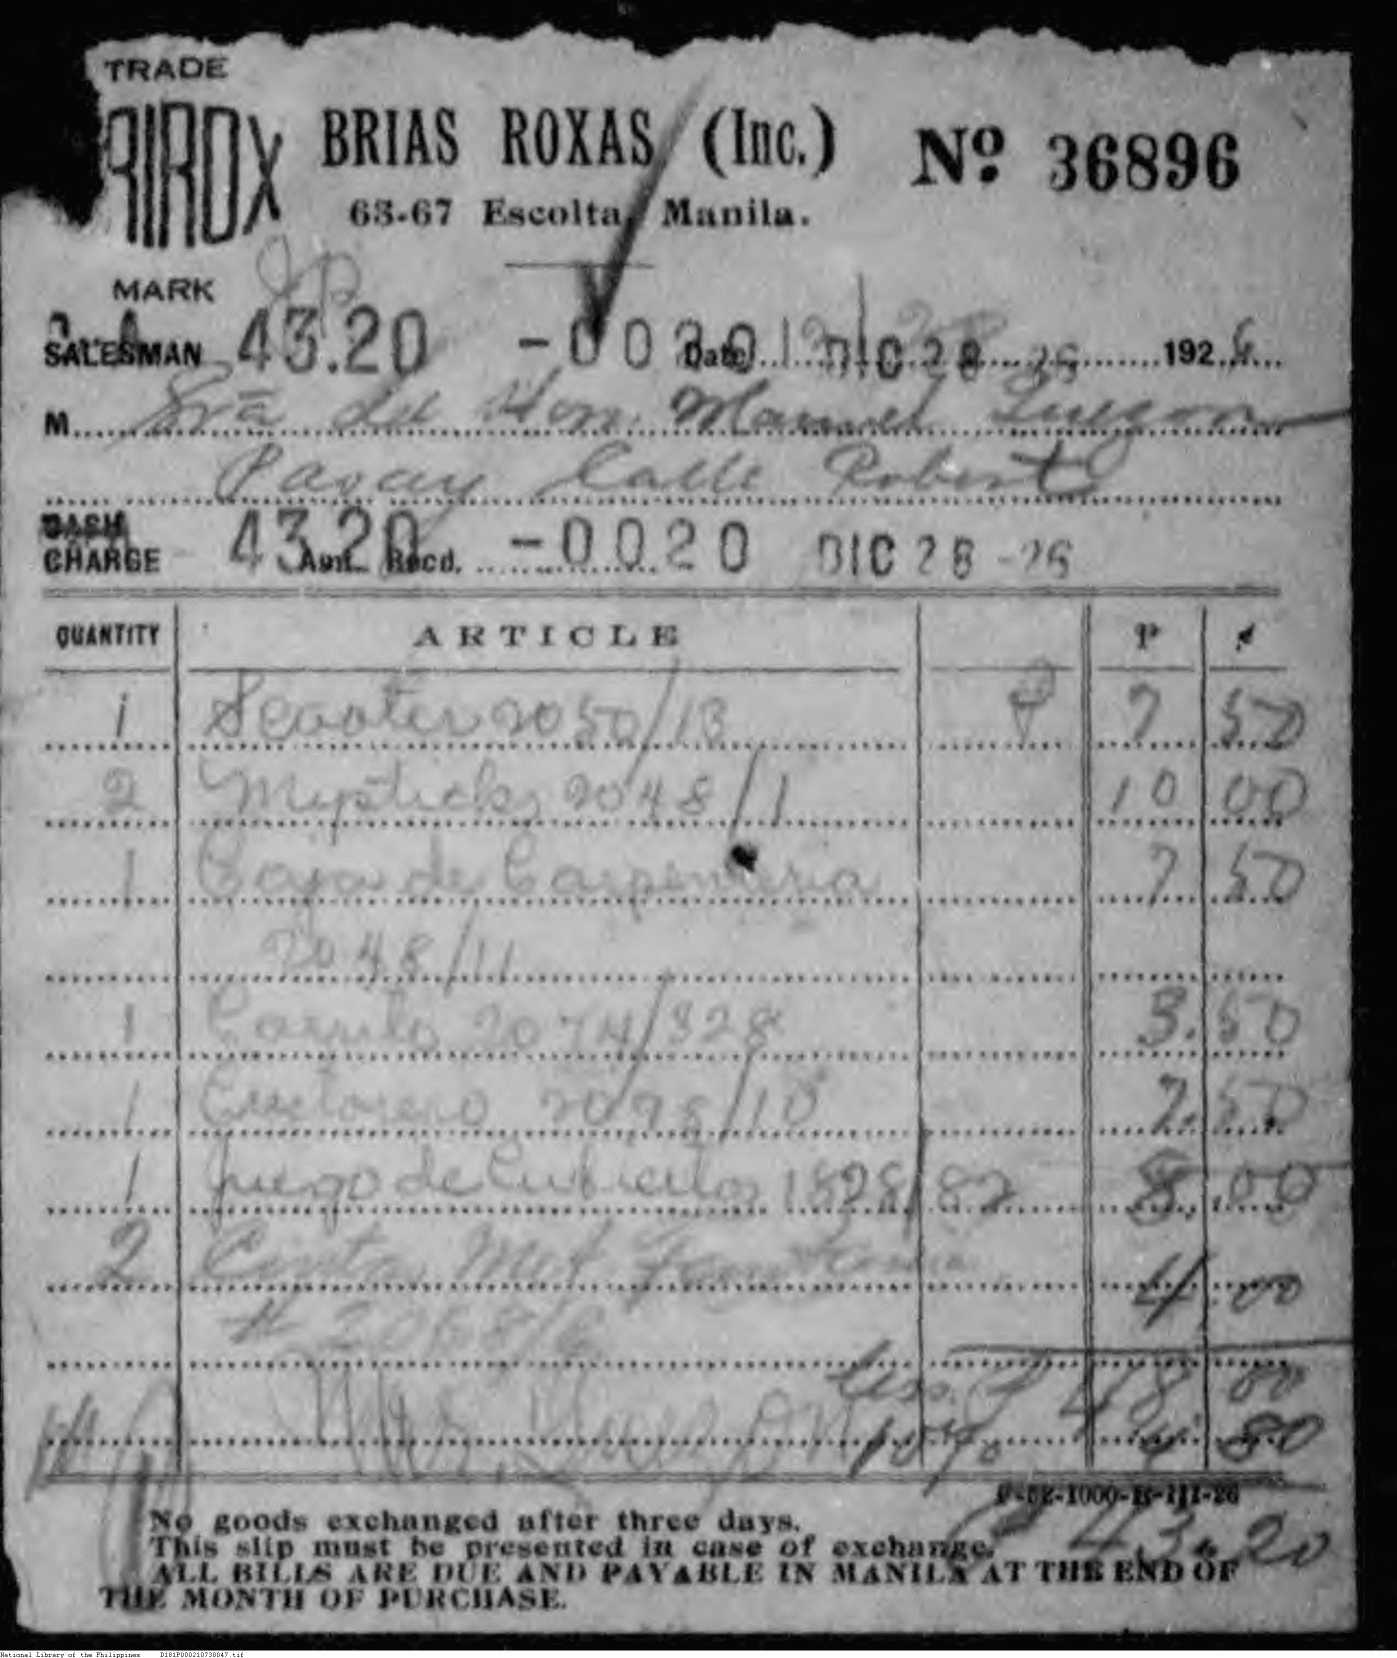 TRADE
BRIAS ROXAS (Inc.) Nº 36896
63-67 Escolta, Manila.
MARK
SALESMAN 43.20 -0020 Date 12/28 DIC 28 -26 1926
M Sra de Hon. Manuel Quezon
Pasay Calle Robert
CASH
CHARGE 43.20 Amt. Recd. -0020 DIC 28 -26
QUANTITY ARTICLE P ¢
1 Scooter 2050/13 ₱ 7 50
2 Mysticks 2048/1 10 00
1 Caja de Carpenteria 7 50
2048/11
1 Carrito 2074/328 3.50
1 2095/10 7.50
1 Juego de Cubiertos 1828/82 8.00
2 4.00
# 2068/6
less ₱ 48 00
Mrs. Quezon 10% 4 80
P-52-1000-B-III-26
₱ 43.20
No goods exchanged after three days.
This slip must be presented in case of exchange.
ALL BILLS ARE DUE AND PAYABLE IN MANILA AT THE END OF
THE MONTH OF PURCHASE.
National Library of the Philippines D181P000210738047.tif